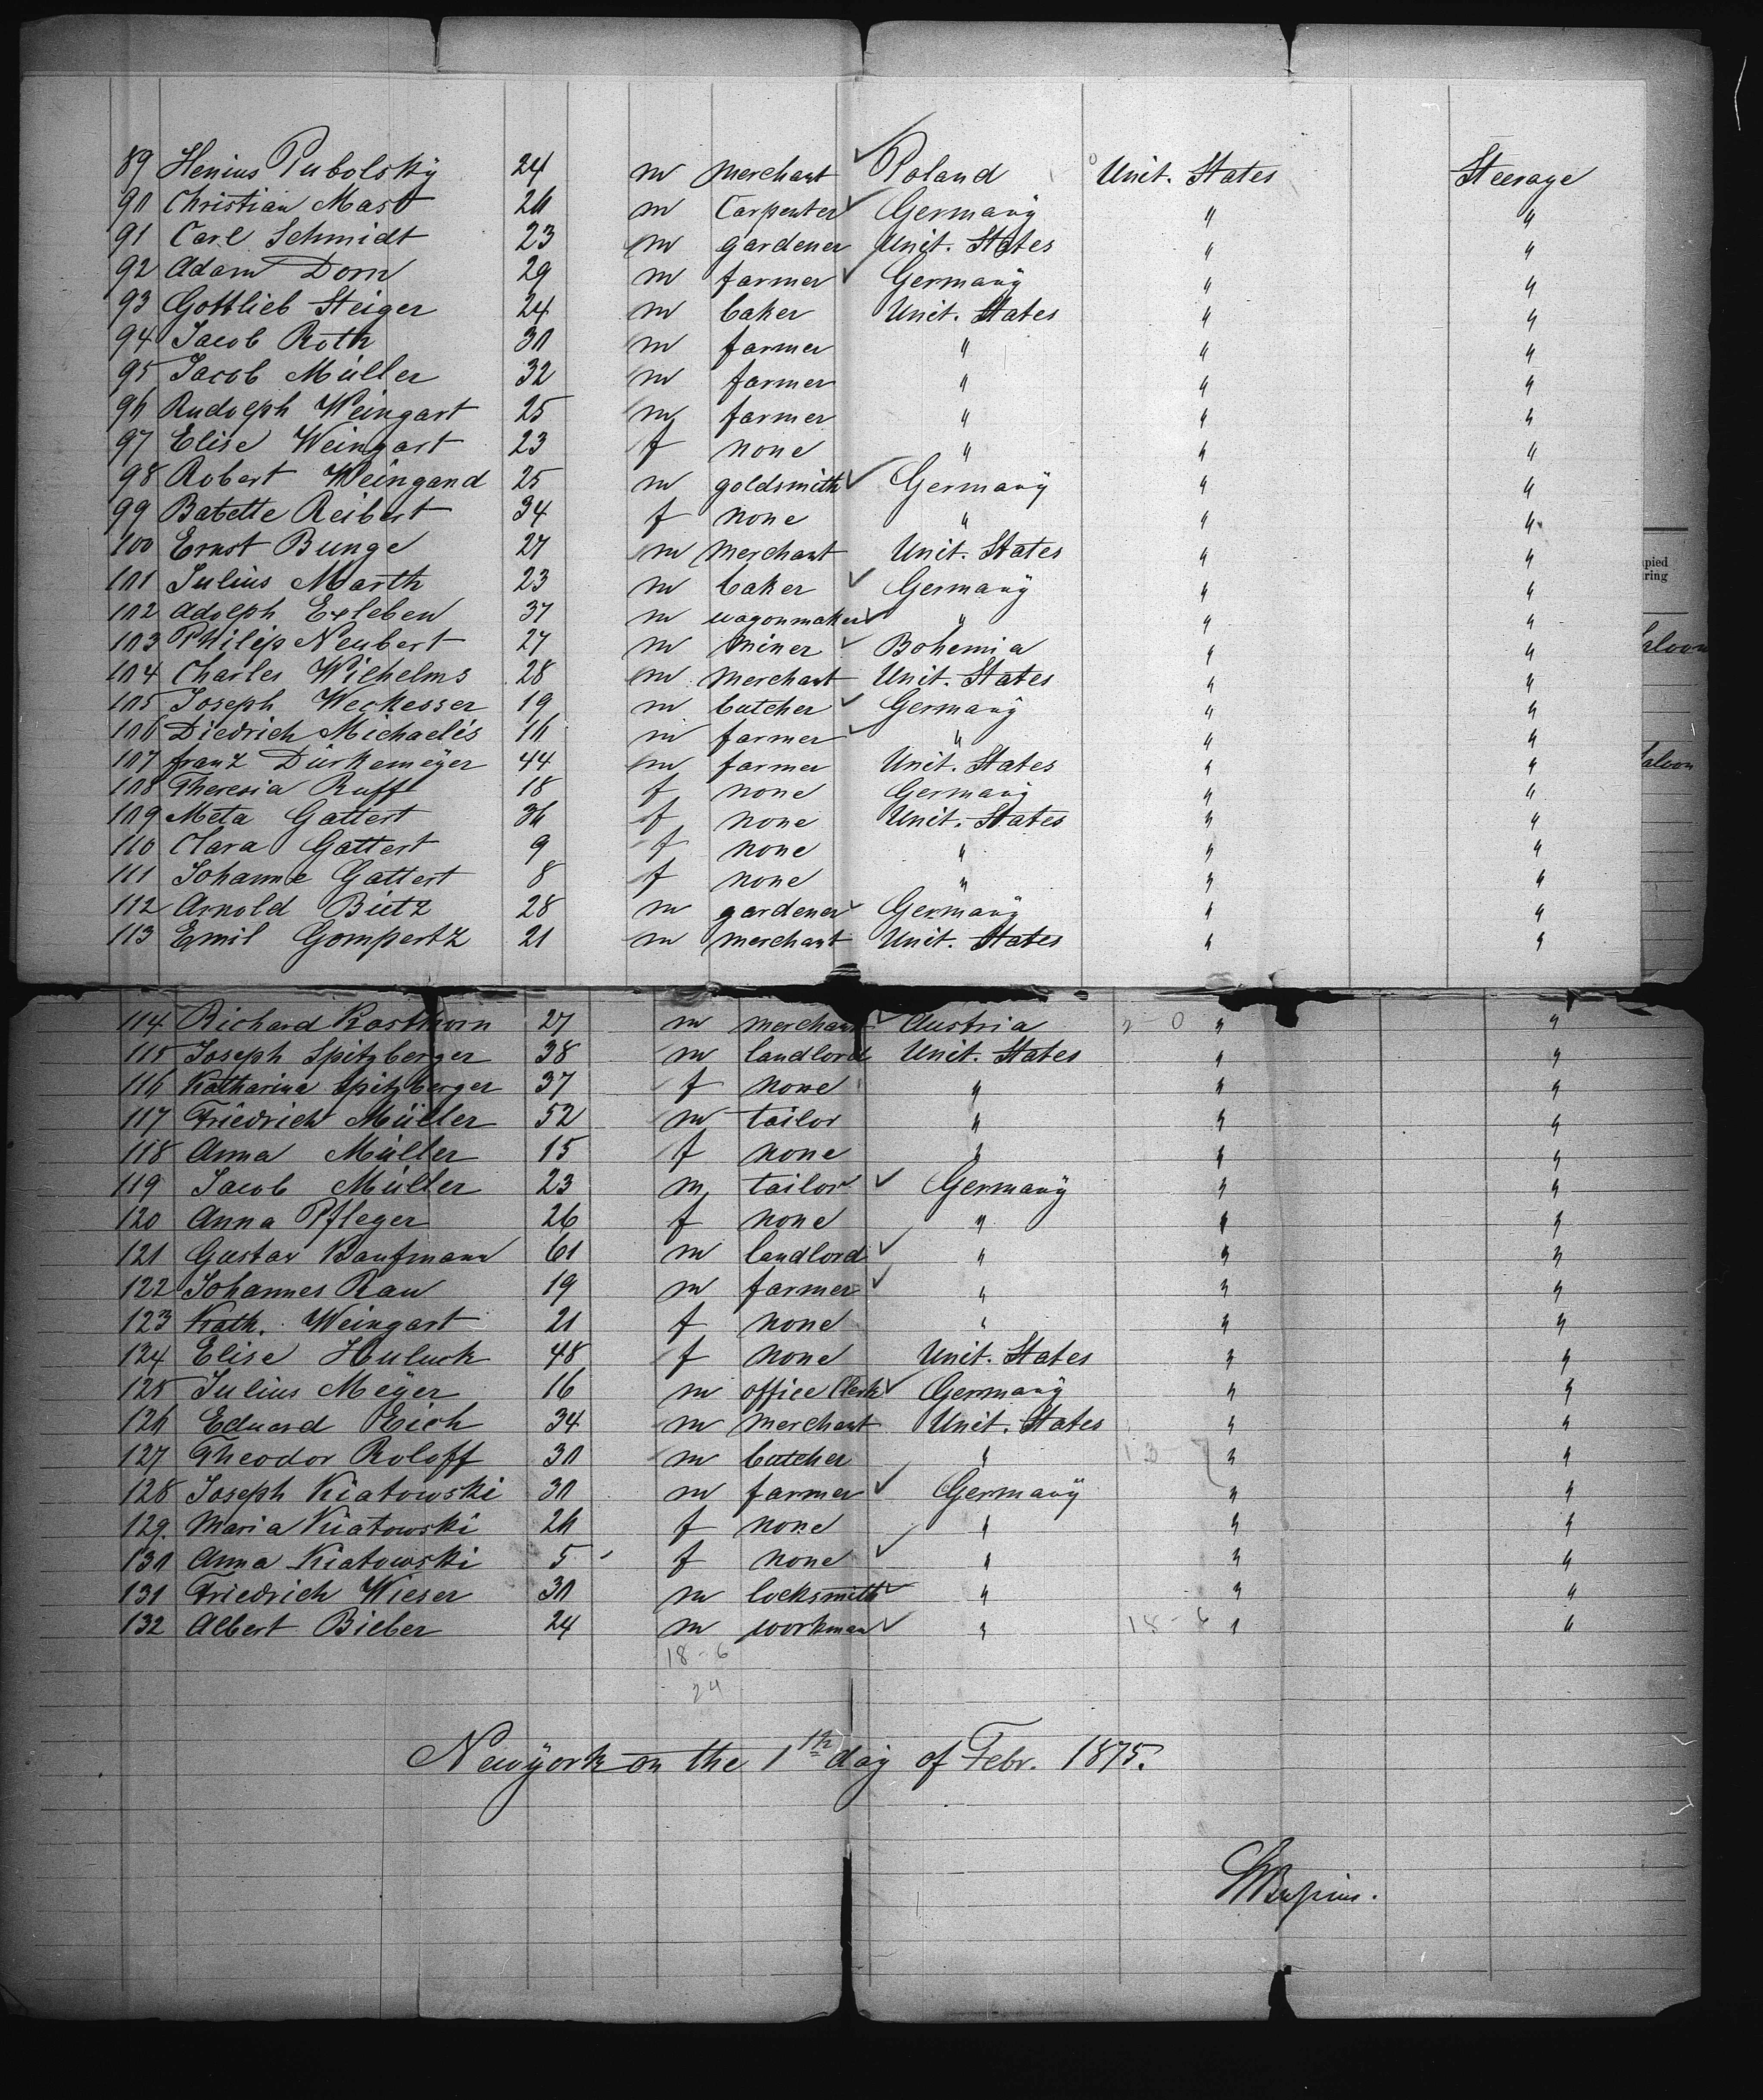 89 Henius Pubolsky 24 m merchant ✓ Poland Unit. States Steerage
90 Christian Mast 26 m Carpenter ✓ Germany " "
91 Carl Schmidt 23 m gardener Unit. States " "
92 Adam Dorn 29 m farmer ✓ Germany " "
93 Gottlieb Steiger 24 m baker Unit. States " "
94 Jacob Roth 30 m farmer " " "
95 Jacob Müller 32 m farmer " " "
96 Rudolph Weingart 25 m farmer " " "
97 Elise Weingart 23 f none " " "
98 Robert Weingand 25 m goldsmith ✓ Germany " "
99 Babette Reibert 34 f none " " "
100 Ernst Bunge 27 m merchant Unit. States " "
101 Julius Marth 23 m baker ✓ Germany " "
102 Adolph Exleben 37 m wagonmaker ✓ " " "
103 Philip Neubert 27 m miner ✓ Bohemia " "
104 Charles Wichelms 28 m merchant Unit. States " "
105 Joseph Weckesser 19 m butcher ✓ Germany " "
106 Diedrich Michaelis 16 m farmer ✓ " " "
107 franz Dürkemeyer 44 m farmer Unit. States " "
108 Theresia Ruff 18 f none Germany " "
109 Meta Gattert 36 f none Unit. States " "
110 Clara Gattert 9 f none " " "
111 Johanne Gattert 8 f none " " "
112 Arnold Bietz 28 m gardener ✓ Germany " "
113 Emil Gompertz 21 m merchant Unit. States " "
114 Richard Kosthorn 27 m merchant ✓ Austria " "
115 Joseph Spitzberger 38 m landlord Unit. States " "
116 Katharina Spitzberger 37 f none " " "
117 Friedrich Müller 52 m tailor " " "
118 Anna Müller 15 f none " " "
119 Jacob Müller 23 m tailor ✓ Germany " "
120 Anna Pfleger 26 f none " " "
121 Gustav Kaufmann 61 m landlord ✓ " " "
122 Johannes Rau 19 m farmer ✓ " " "
123 Kath. Weingart 21 f none " " "
124 Elise Huluck 48 f none Unit. States " "
125 Julius Meyer 16 m office Clerk ✓ Germany " "
126 Eduard Eich 34 m merchant Unit. States " "
127 Theodor Roloff 30 m butcher " 13 - 7 " "
128 Joseph Kiatowski 30 m farmer ✓ Germany " "
129 Maria Kiatowski 26 f none ✓ " " "
130 Anna Kiatowski 5 f none ✓ " " "
131 Friedrich Wieser 30 m locksmith ✓ " " "
132 Albert Bieber 24 m workman ✓ " 18 - 6 " "
18 - 6
24
Newyork on the 1th day of Febr. 1875.
pied
ring
aloon
aloon